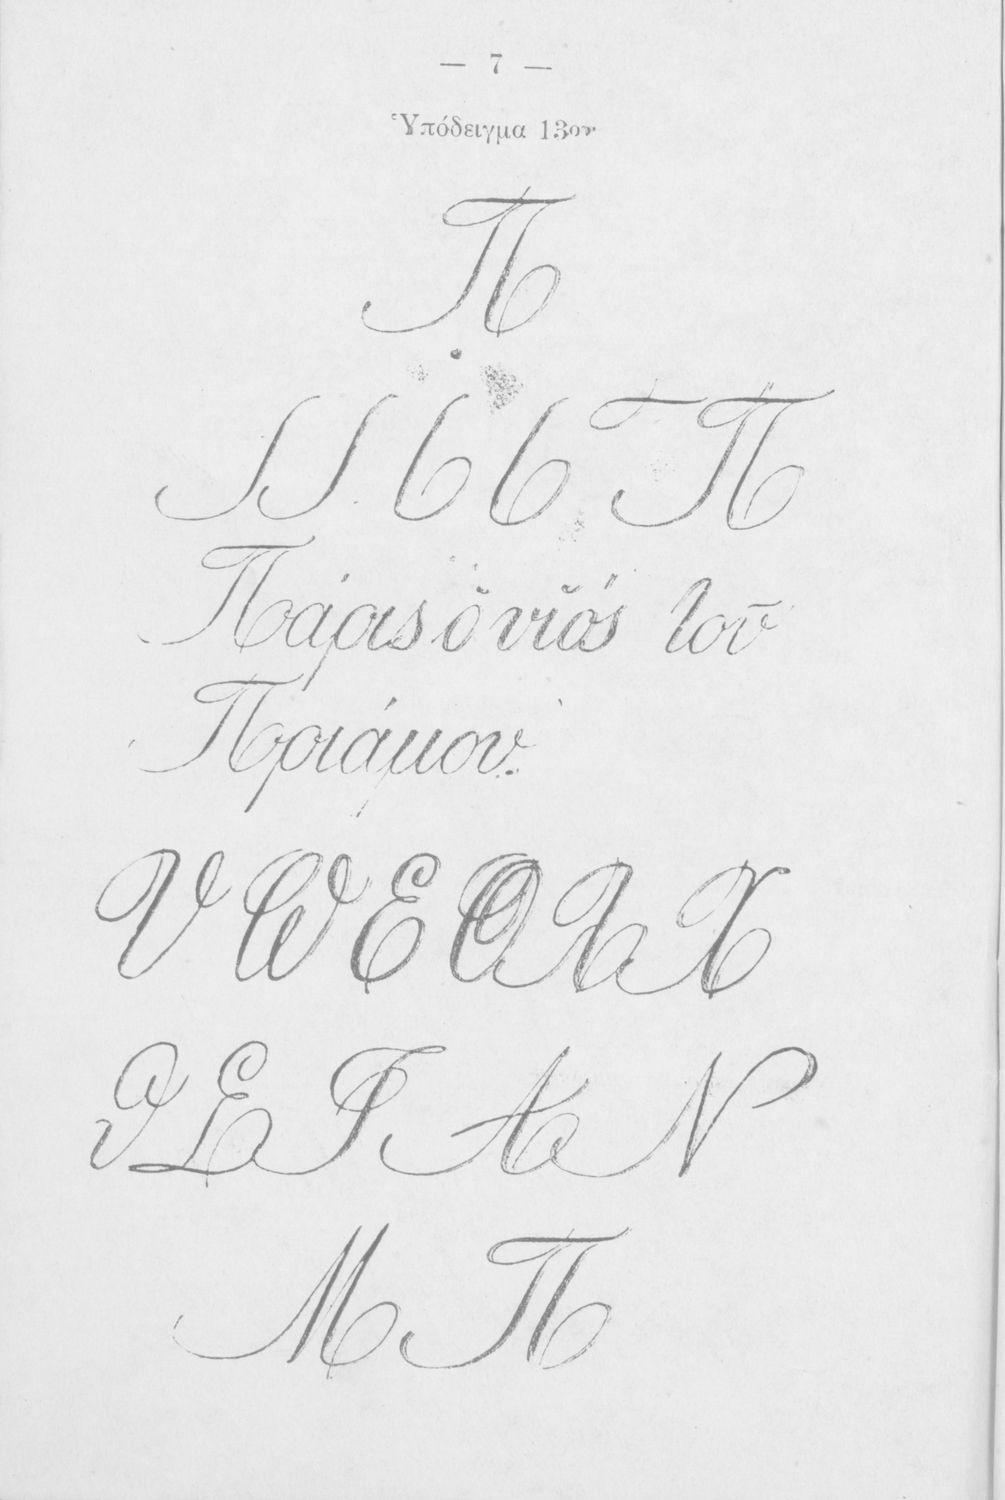 — 7 —
Ὑπόδειγμα 13ον
Π
Π
Πάρις ὁ υἱός τοῦ
Πριάμου.
Ε Θ Λ Χ
Σ Γ Α Ν
Μ Π